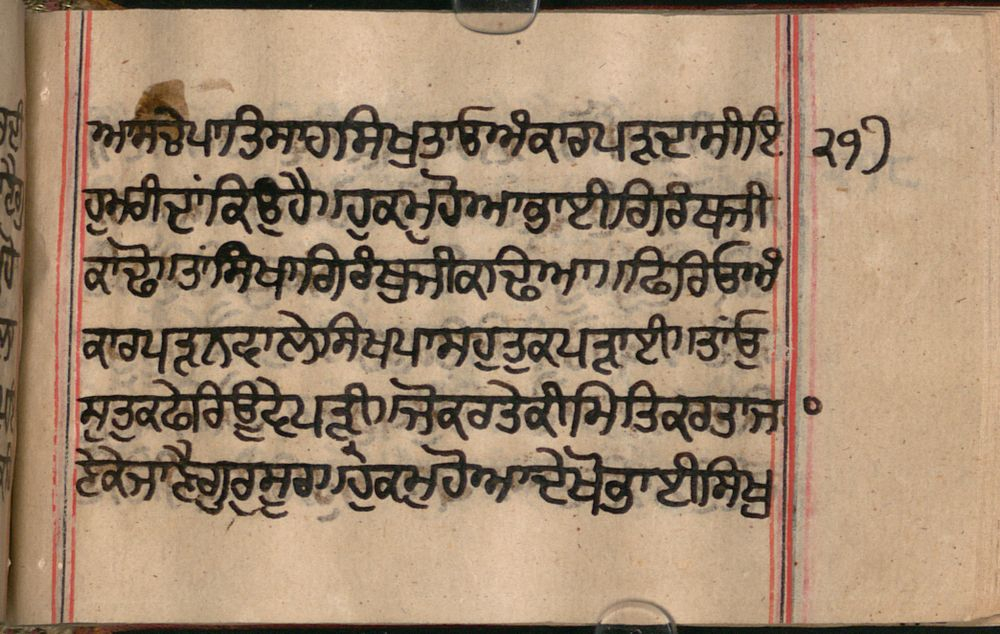 ਆਸਚੇਪਾਤਿਸਾਹਸਿਖੁਤਾਂਓਅੰਕਾਰਪੜ੍ਹਦਾਸੀਇ ੨੧੭
ਹੁਮਰੀਦਾਂਕਿਉਹੈ॥ਹੁਕਮੁਹੋਆਭਾਈਗਿਰੰਥਜੀ
ਕਾਢੋ॥ਤਾਂਸਿਖਾਗਿਰੰਥੁਜੀਕਾਢਿਆ॥ਫਿਰਿਓਅੰ
ਕਾਰਪੜਨਵਾਲੇਸਿਖਪਾਸਹੁਤੁਕਪੜਾਈ॥ਤਾਂਓ
ਸੁਤੁਕਫੇਰਿਉਵੇਪੜੀ॥ਜੋਕਰਤੇਕੀਮਿਤਿਕਰਤਾਜਾ
ਣੇਕੈਜਾਣੈਗੁਰੁਸੂਰਾ॥ਹੁਕਮੁਹੋਆਦੇਖੋਭਾਈਸਿਖੁ